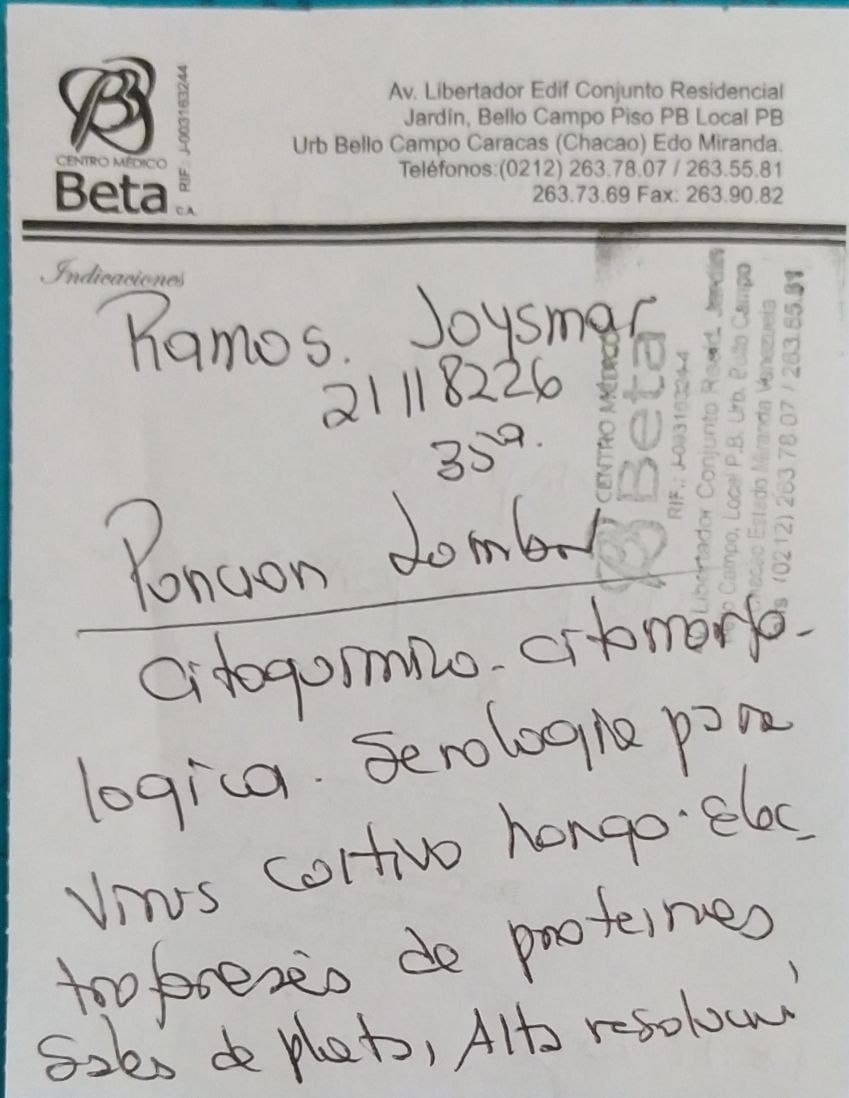 CENTRO MÉDICO
Beta C.A.
RIF.: J-003163244
Av. Libertador Edif Conjunto Residencial
Jardín, Bello Campo Piso PB Local PB
Urb Bello Campo Caracas (Chacao) Edo Miranda.
Teléfonos:(0212) 263.78.07 / 263.55.81
263.73.69 Fax: 263.90.82
Indicaciones
Ramos. Joysmar
21118226
35a.
Poncion Lombar
Citoquimico - citomorfo-
logica. Serologia para
Virus cultivo hongo. Elec-
troforesis de proteinas
Sales de plata, Alta resolucion
CENTRO MÉDICO
Beta
RIF.: J-003163244
Libertador Conjunto Resid. Jardin
Campo, Local P.B. Urb. Bello Campo
Chacao Estado Miranda Venezuela
(0212) 263 78 07 / 263.55.81